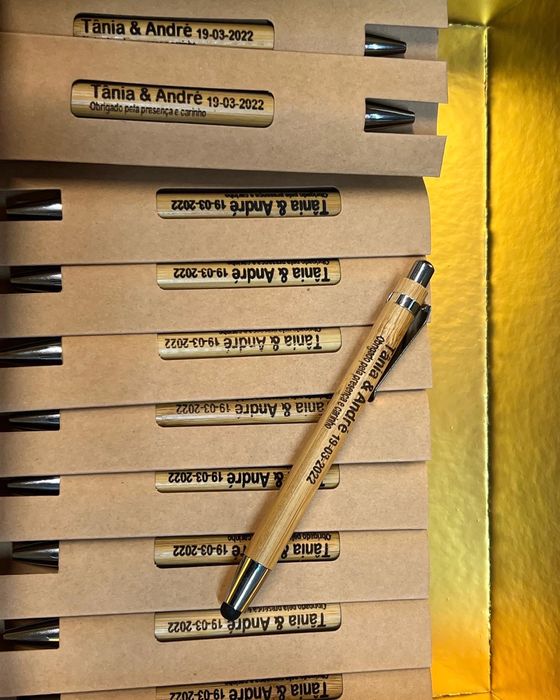 Tânia & André 19-03-2022
Tânia & André 19-03-2022
Obrigado pela presença e carinho
Tânia & André 19-03-2022
Obrigado pela presença e carinho
Tânia & André 19-03-2022
Tânia & André 19-03-2022
Obrigado pela presença e carinho
Tânia & André 19-03-2022
Tânia & André 19-03-2022
Tânia & André 19-03-2022
Tânia & André 19-03-2022
Obrigado pela presença e carinho
Tânia & André 19-03-2022
Obrigado pela presença e carinho
Tânia & André 19-03-2022